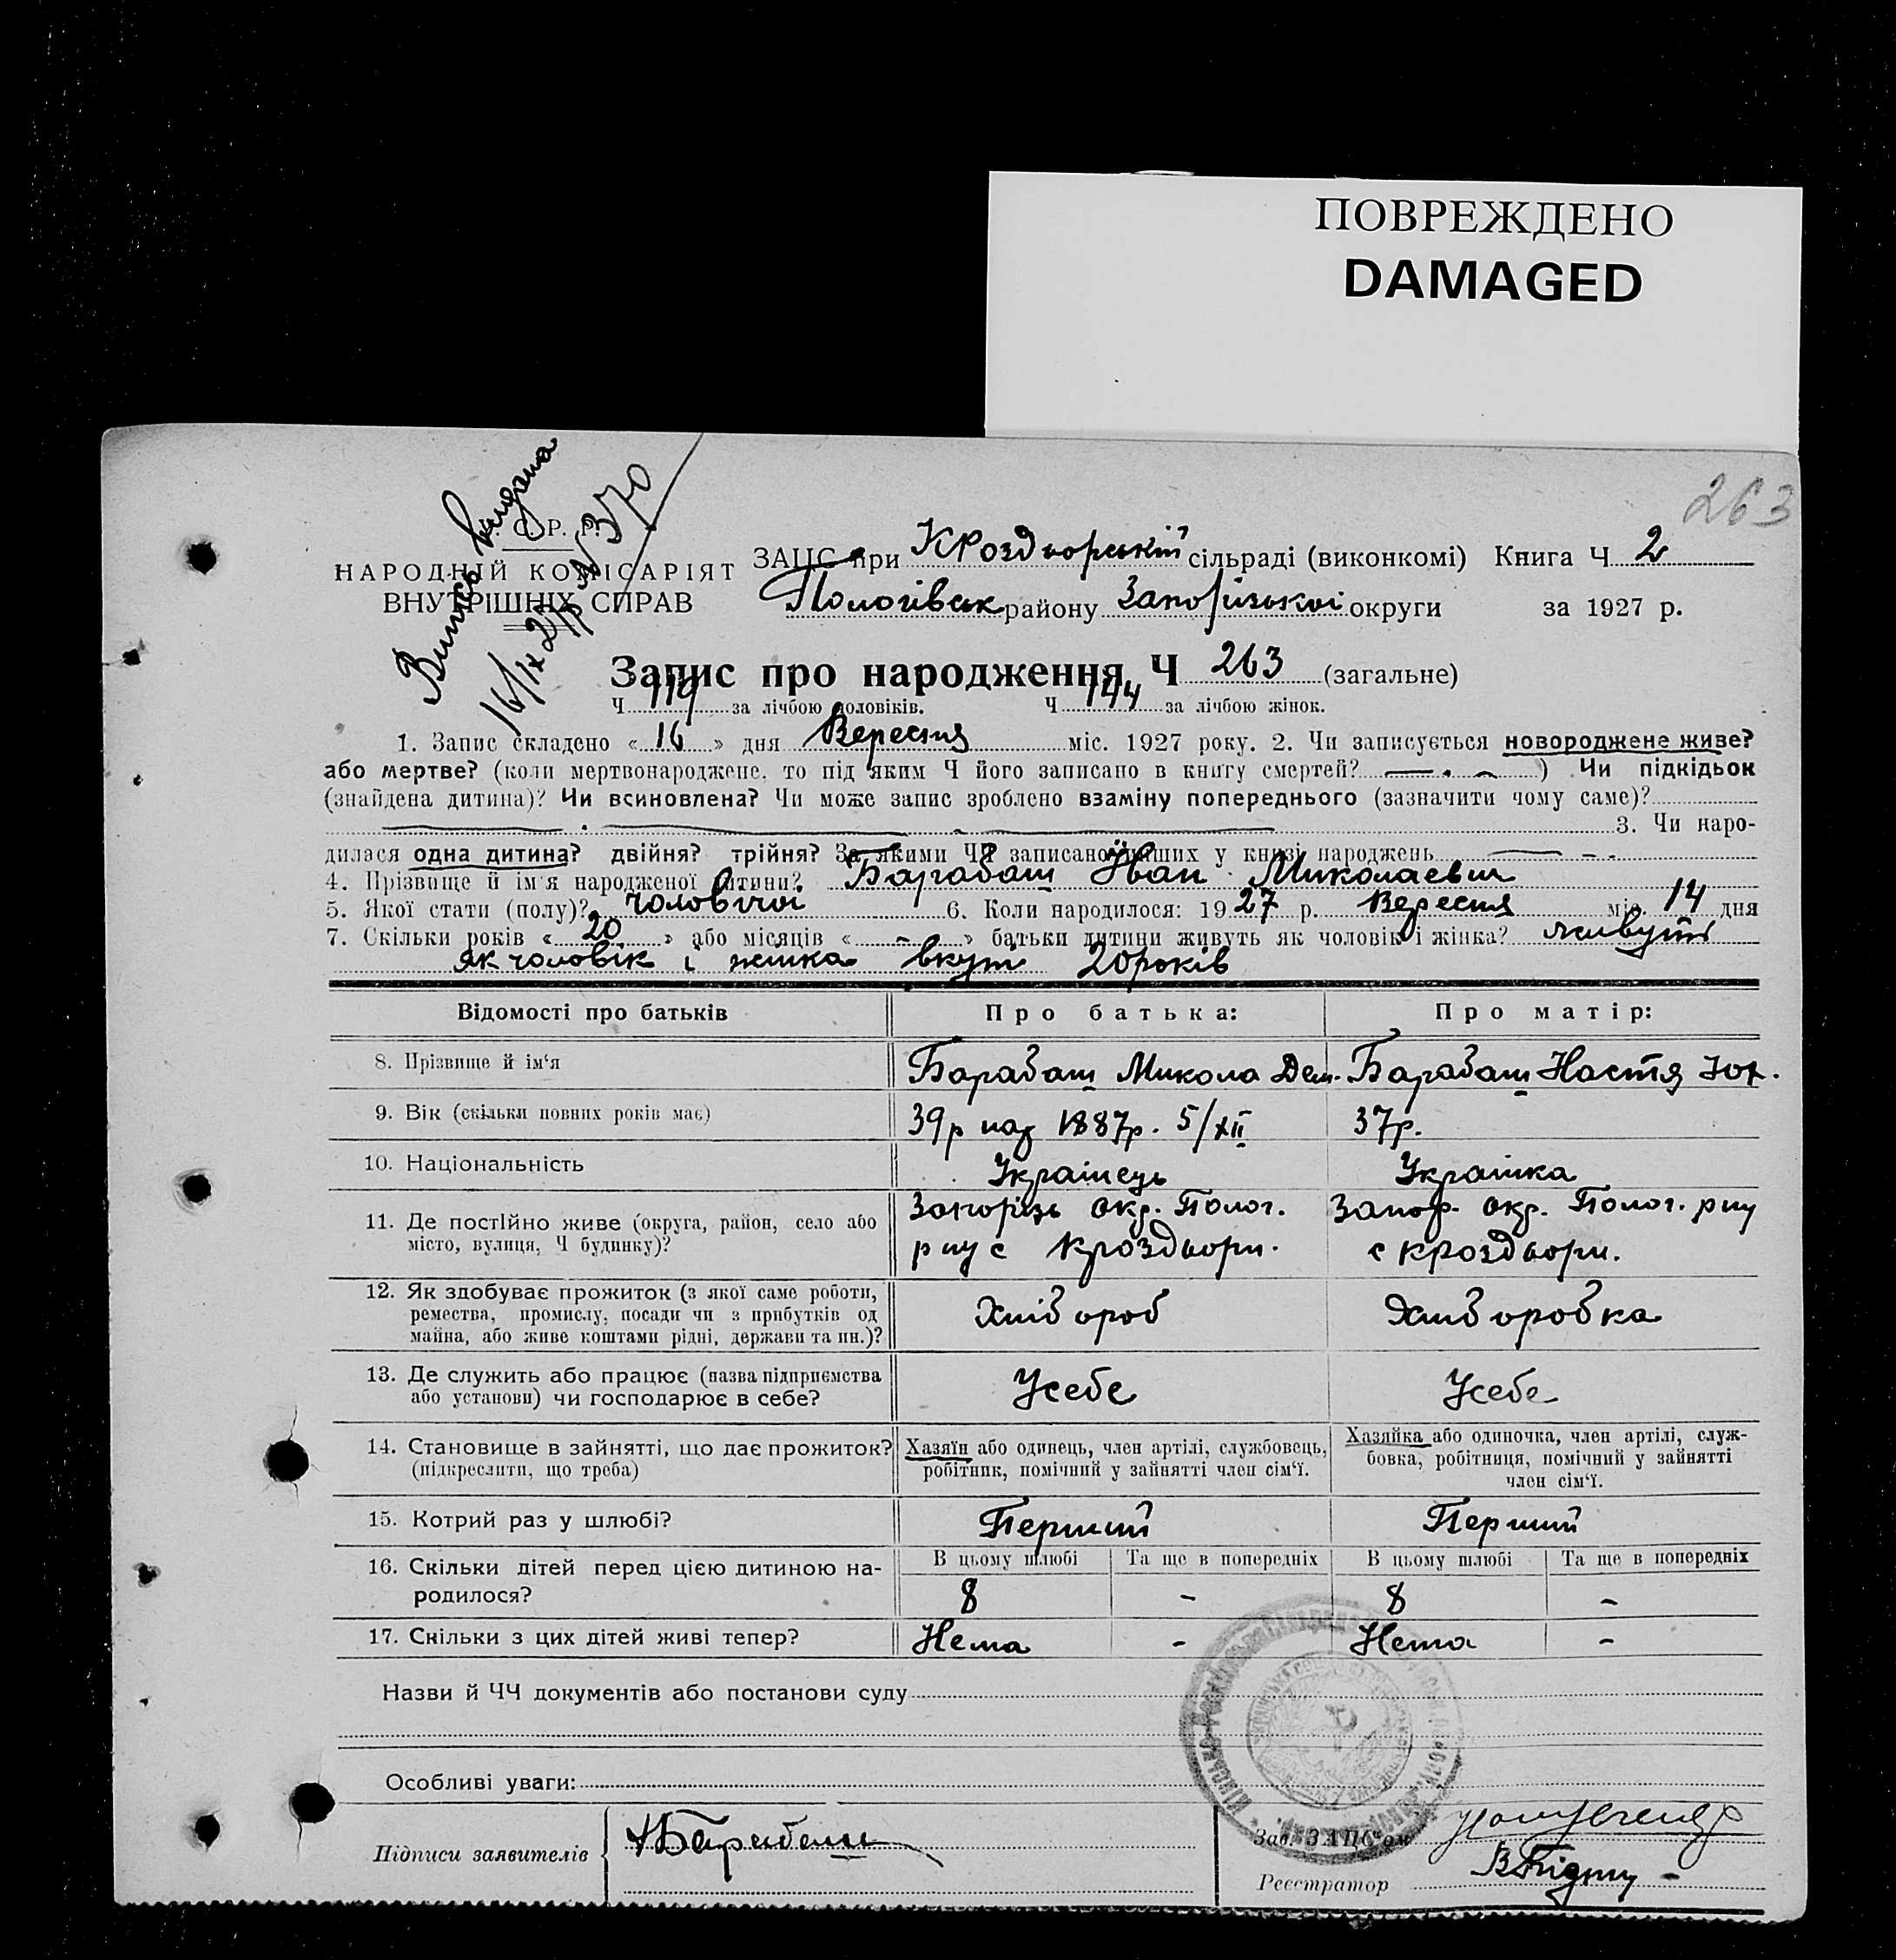 ПОВРЕЖДЕНО
DAMAGED
263
Випись видана
16/IX 27р N 370
С. Р. Р.
НАРОДНІЙ КОМІСАРІЯТ
ВНУТРІШНІХ СПРАВ
ЗАЦС при КРоздорській сільраді (виконкомі) Книга Ч 2
Пологівськ району Запорізької округи за 1927 р.
Запис про народження Ч 263 (загальне)
Ч 119 за лічбою чоловіків. Ч 144 за лічбою жінок.
1. Запис складено « 16 » дня Вересня міс. 1927 року. 2. Чи записується новороджене живе?
або мертве? (коли мертвонароджене, то під яким Ч його записано в книгу смертей? ) Чи підкідьок
(знайдена дитина)? Чи всиновлена? Чи може запис зроблено взаміну попереднього (зазначити чому саме)?
3. Чи наро-
дилася одна дитина? двійня? трійня? За якими ЧЧ записано інших у книзі народжень
4. Прізвище й ім'я народженої дитини? Барабаш Іван Миколаевич
5. Якої стати (полу)? чоловічої 6. Коли народилося: 1927 р. Вересня міс. 14 дня
7. Скільки років « 20 » або місяців « - » батьки дитини живуть як чоловік і жінка? живуть
як чоловік і жінка вкупі 20 років
Відомості про батьків Про батька: Про матір:
8. Прізвище й ім'я Барабаш Микола Дем. Барабаш Настя Юх.
9. Вік (скільки повних років має) 39р нар 1887р. 5/XII 37р.
10. Національність Українець Українка
11. Де постійно живе (округа, район, село або Запорізь окр. Полог. Запор. окр. Полог. р ну
місто, вулиця, Ч будинку)? р ну с Кроздори. с Кроздори.
12. Як здобуває прожиток (з якої саме роботи, Хліб ороб Хліб оробка
ремества, промислу, посади чи з прибутків од
майна, або живе коштами рідні, держави та ин.)?
13. Де служить або працює (назва підприємства Усебе Усебе
або установи) чи господарює в себе?
14. Становище в зайнятті, що дає прожиток? Хазяїн або одинець, член артілі, службовець, Хазяйка або одиночка, член артілі, служ-
(підкреслити, що треба) робітник, помічний у зайнятті член сім'ї. бовка, робітниця, помічний у зайнятті
член сім'ї.
15. Котрий раз у шлюбі? Перший Перший
16. Скільки дітей перед цією дитиною на- В цьому шлюбі Та ще в попередніх В цьому шлюбі Та ще в попередніх
родилося? 8 - 8 -
17. Скільки з цих дітей живі тепер? Нема - Нема -
Назви й ЧЧ документів або постанови суду
Особливі уваги:
Підписи заявителів Барабаш
Зав. ЗАЦС'ом
Реєстратор